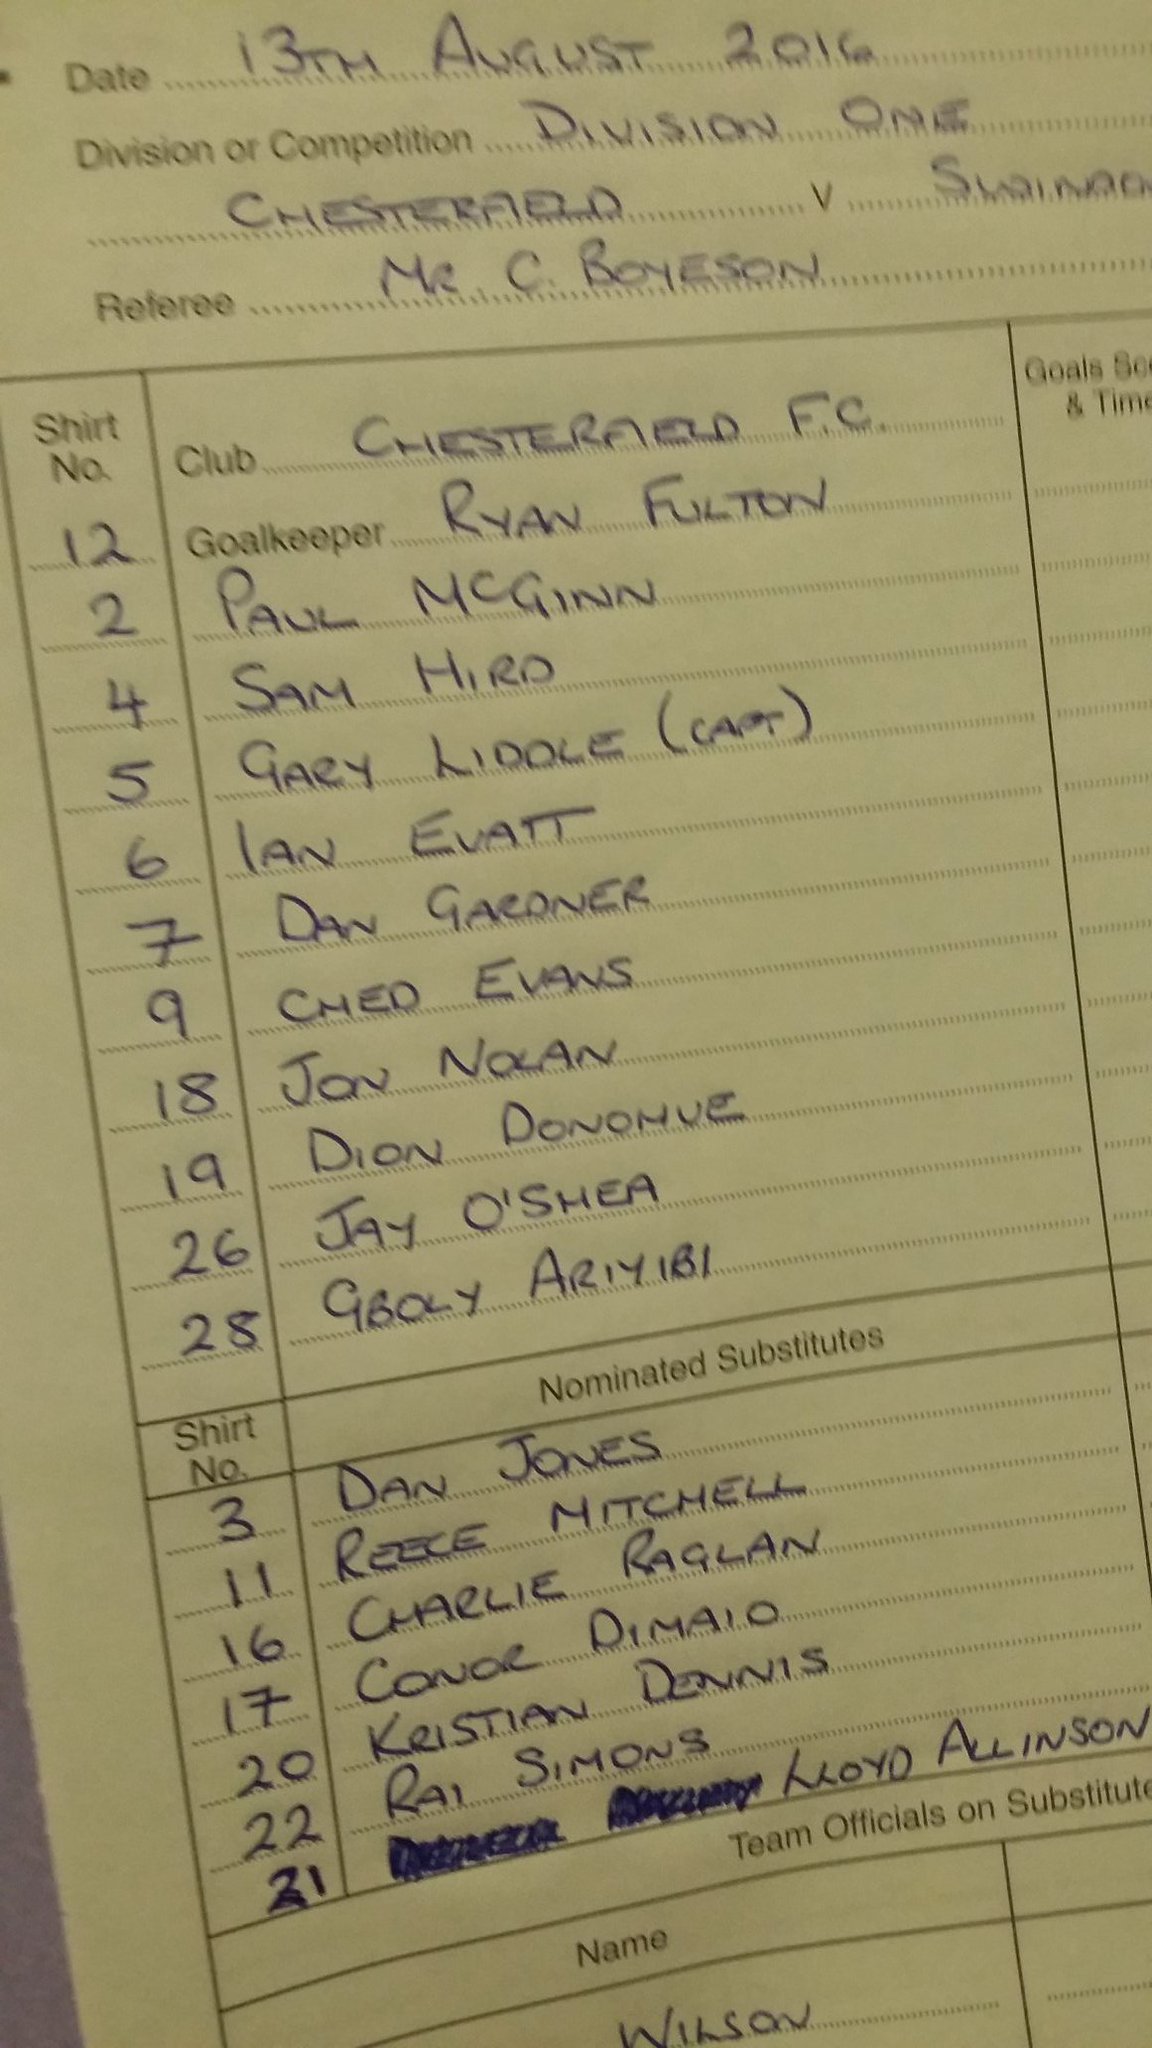 Date 13TH AUGUST 2016
Division or Competition DIVISION ONE
CHESTERFIELD V
Referee MR. C. BOYESON
Shirt No. Club CHESTERFIELD F.C. Goals
& Time
12 Goalkeeper RYAN FULTON
2 PAUL MCGINN
4 SAM HIRD
5 GARY LIDDLE (CAPT)
6 IAN EVATT
7 DAN GARDNER
9 CHED EVANS
18 JON NOLAN
19 DION DONOHUE
26 JAY O'SHEA
28 GBOLY ARIYIBI
Nominated Substitutes
Shirt No.
3 DAN JONES
11 REECE MITCHELL
16 CHARLIE RAGLAN
17 CONOR DIMAIO
20 KRISTIAN DENNIS
22 RAI SIMONS
21 LLOYD ALLINSON
Team Officials on Substitute
Name
WILSON